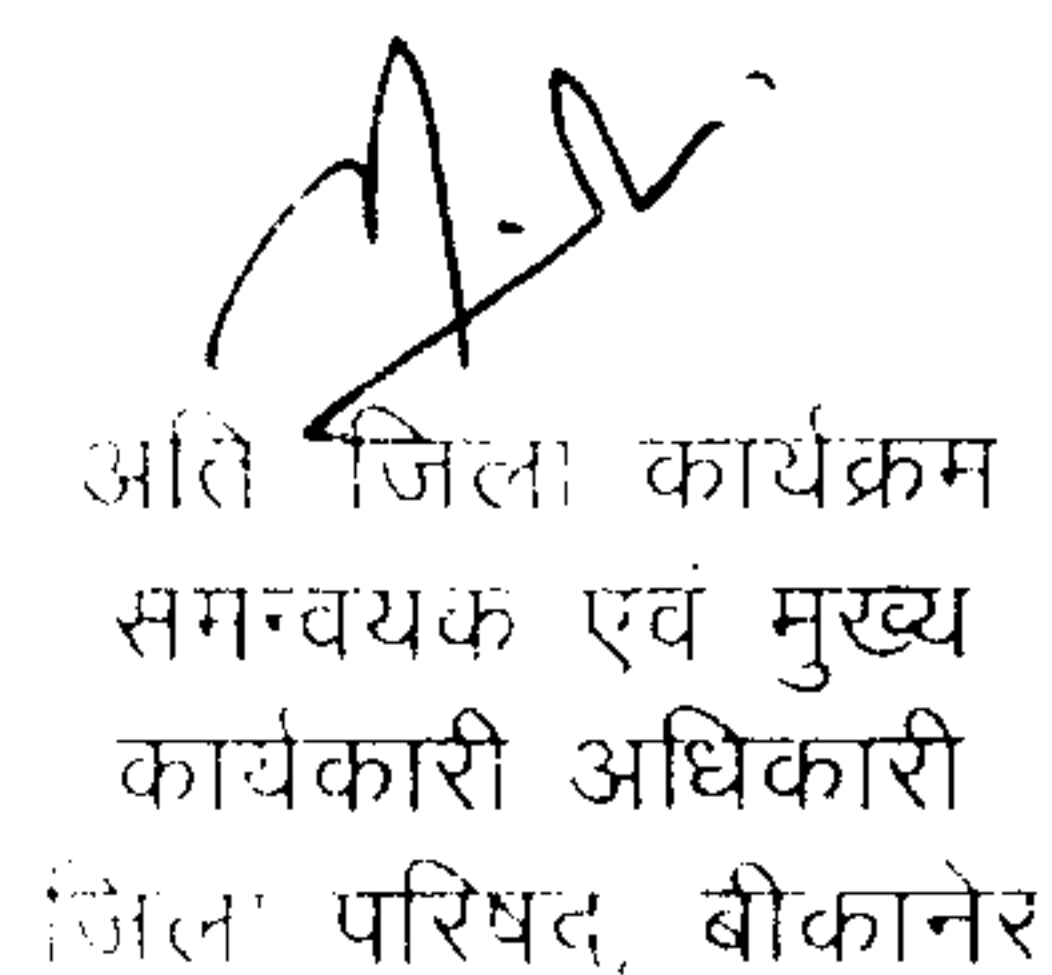 अति जिला कार्यक्रम
समन्वयक एवं मुख्य
कार्यकारी अधिकारी
जिला परिषद, बीकानेर